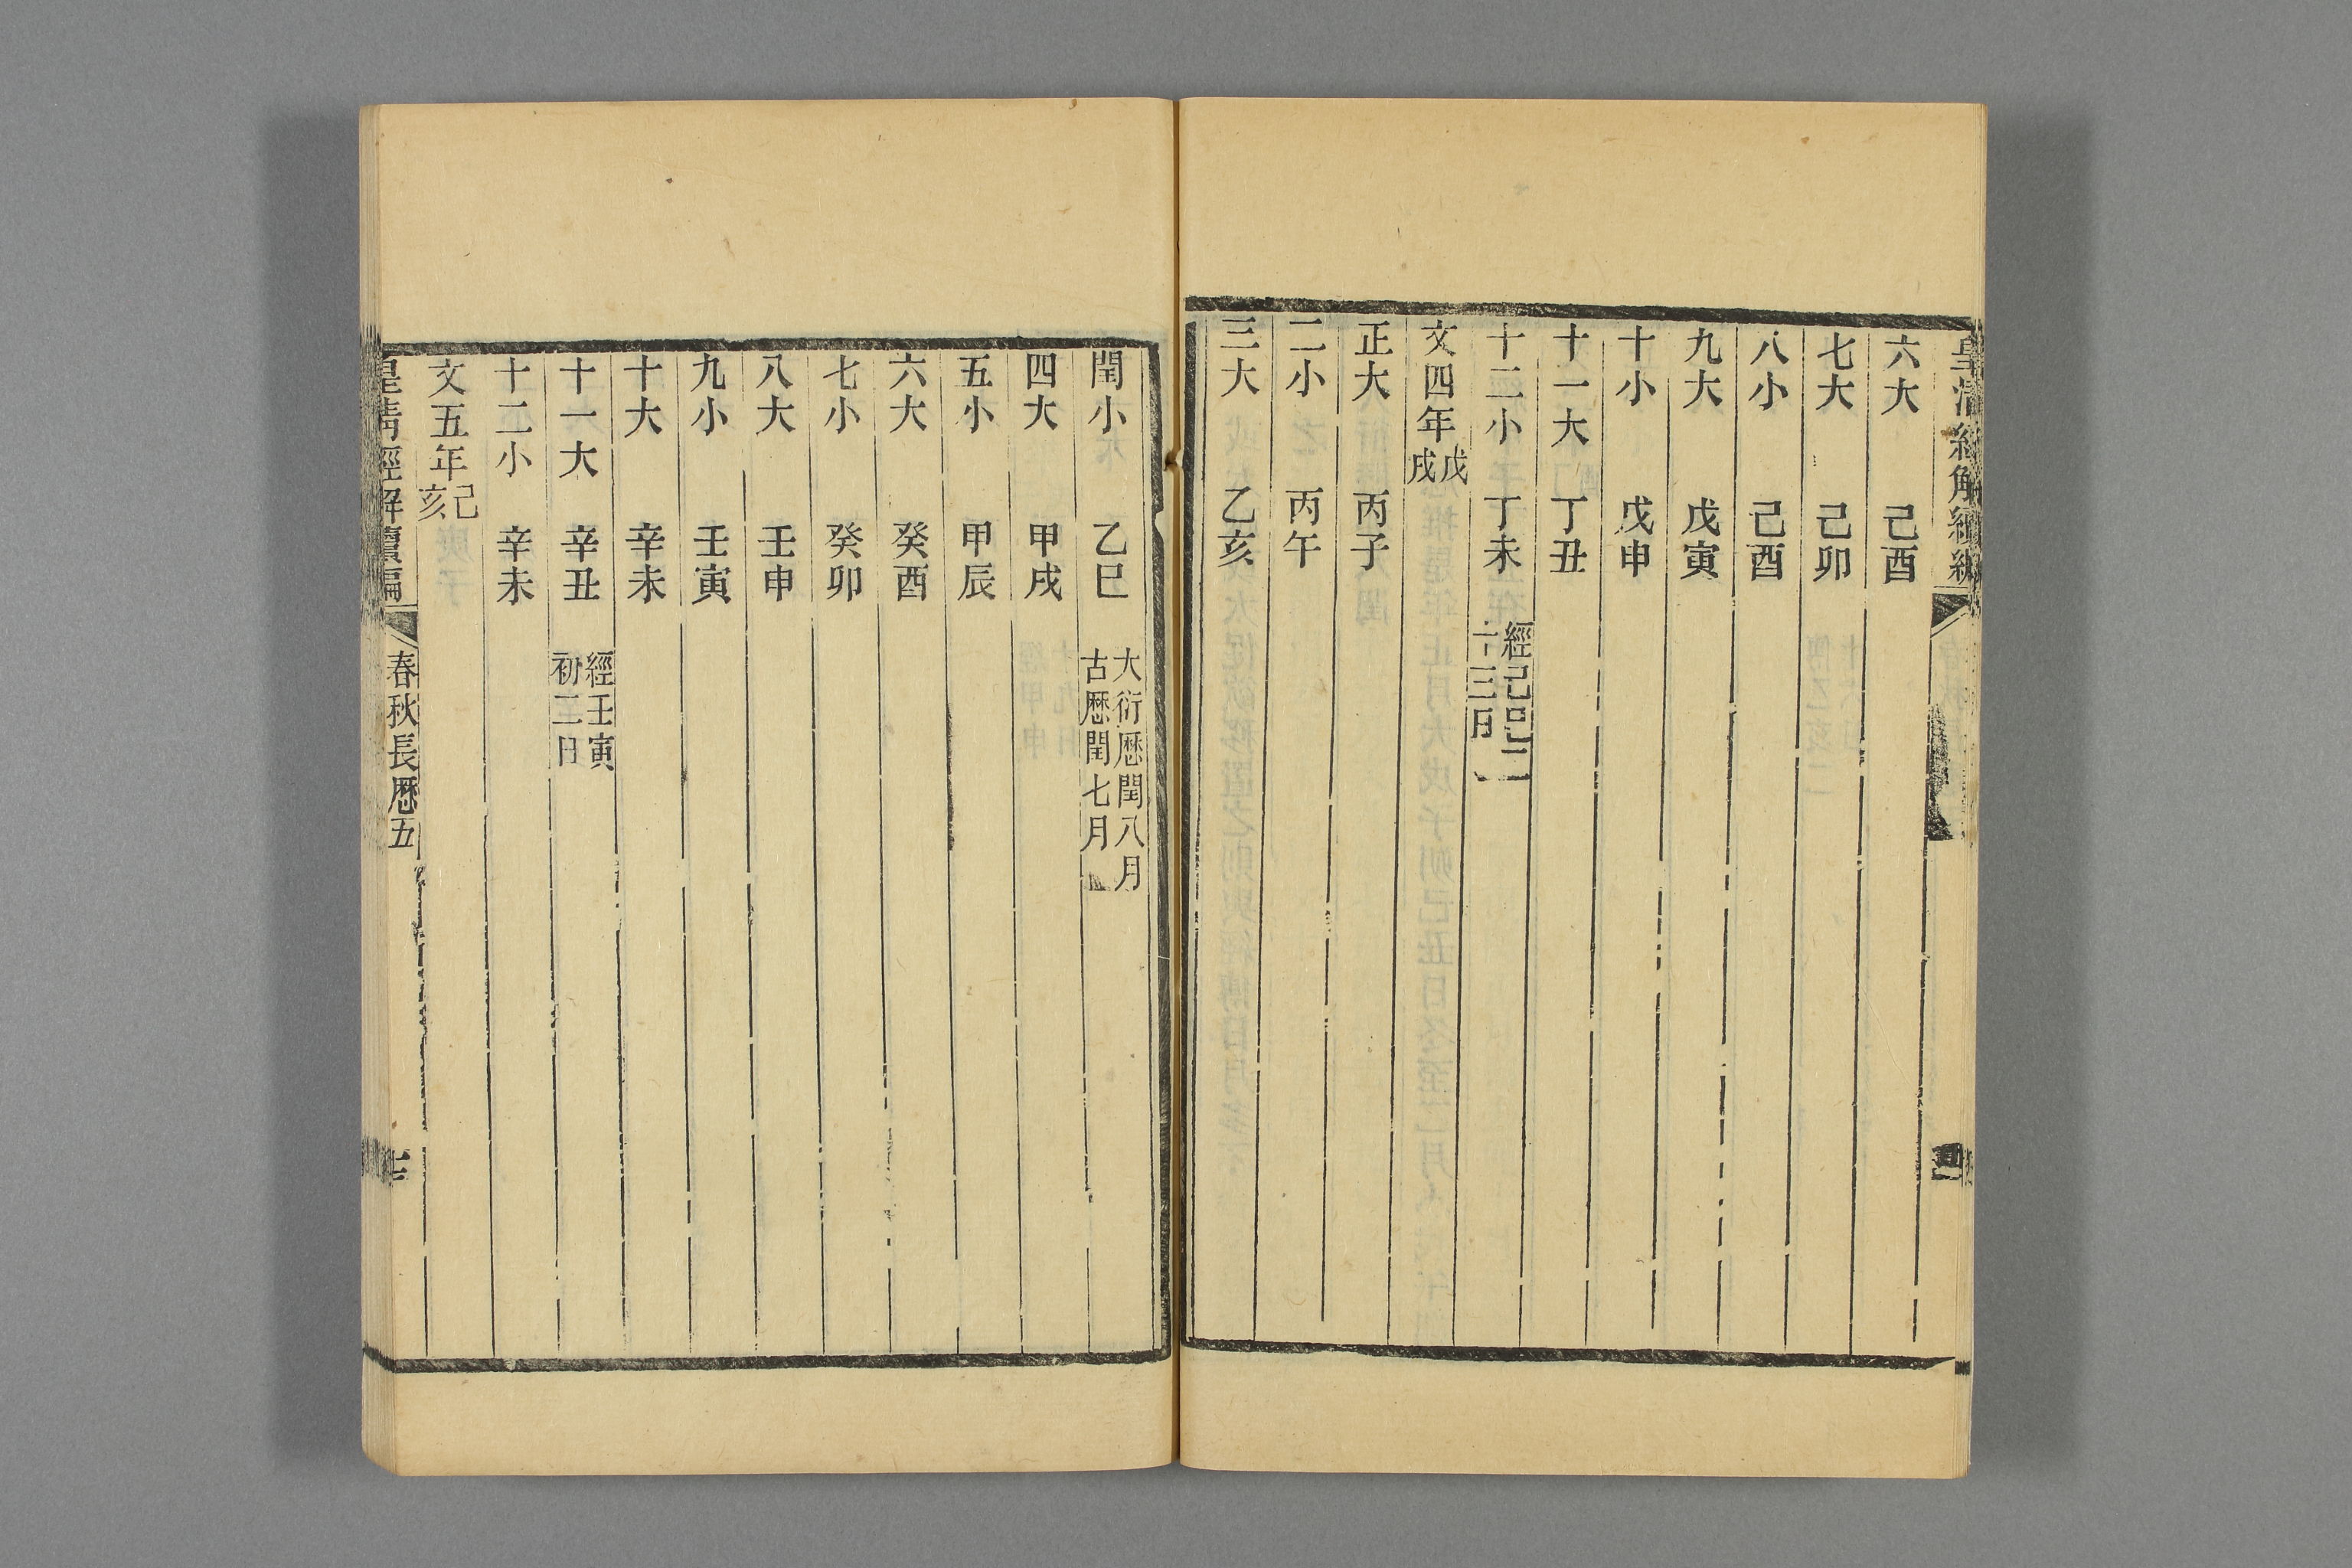 皇清經解續編
六大 己酉
七大 己卯
八小 己酉
九大 戊寅
十小 戊申
十一大 丁丑
十二小 丁未 經己巳二
十三日
文四年戊戌
正大 丙子
二小 丙午
三大 乙亥
閏小 乙巳 大衍厯閏八月
古厯閏七月
四大 甲戌
五小 甲辰
六大 癸酉
七小 癸卯
八大 壬申
九小 壬寅
十大 辛未
十一大 辛丑 經壬寅
初二日
十二小 辛未
文五年己亥
皇清經解續編 春秋長厯五